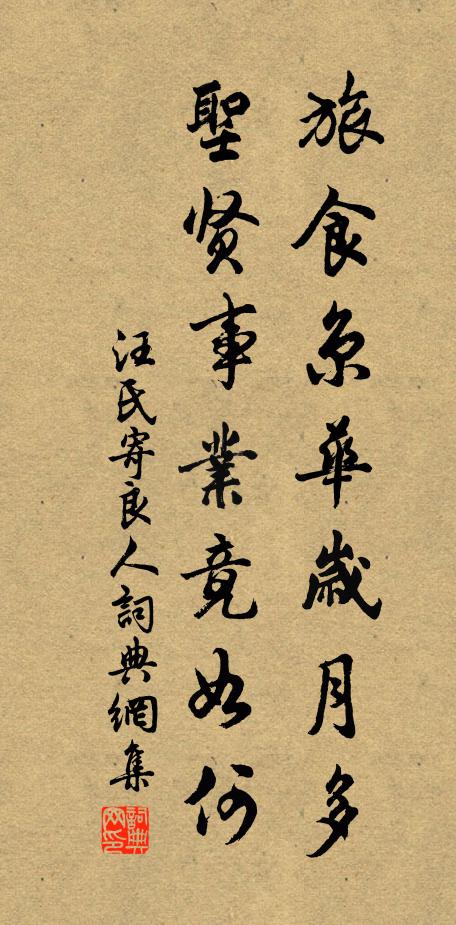 旅食京華歲月多
聖贤事業竟如何
汪氏寄良人詞典網集
詞典网印